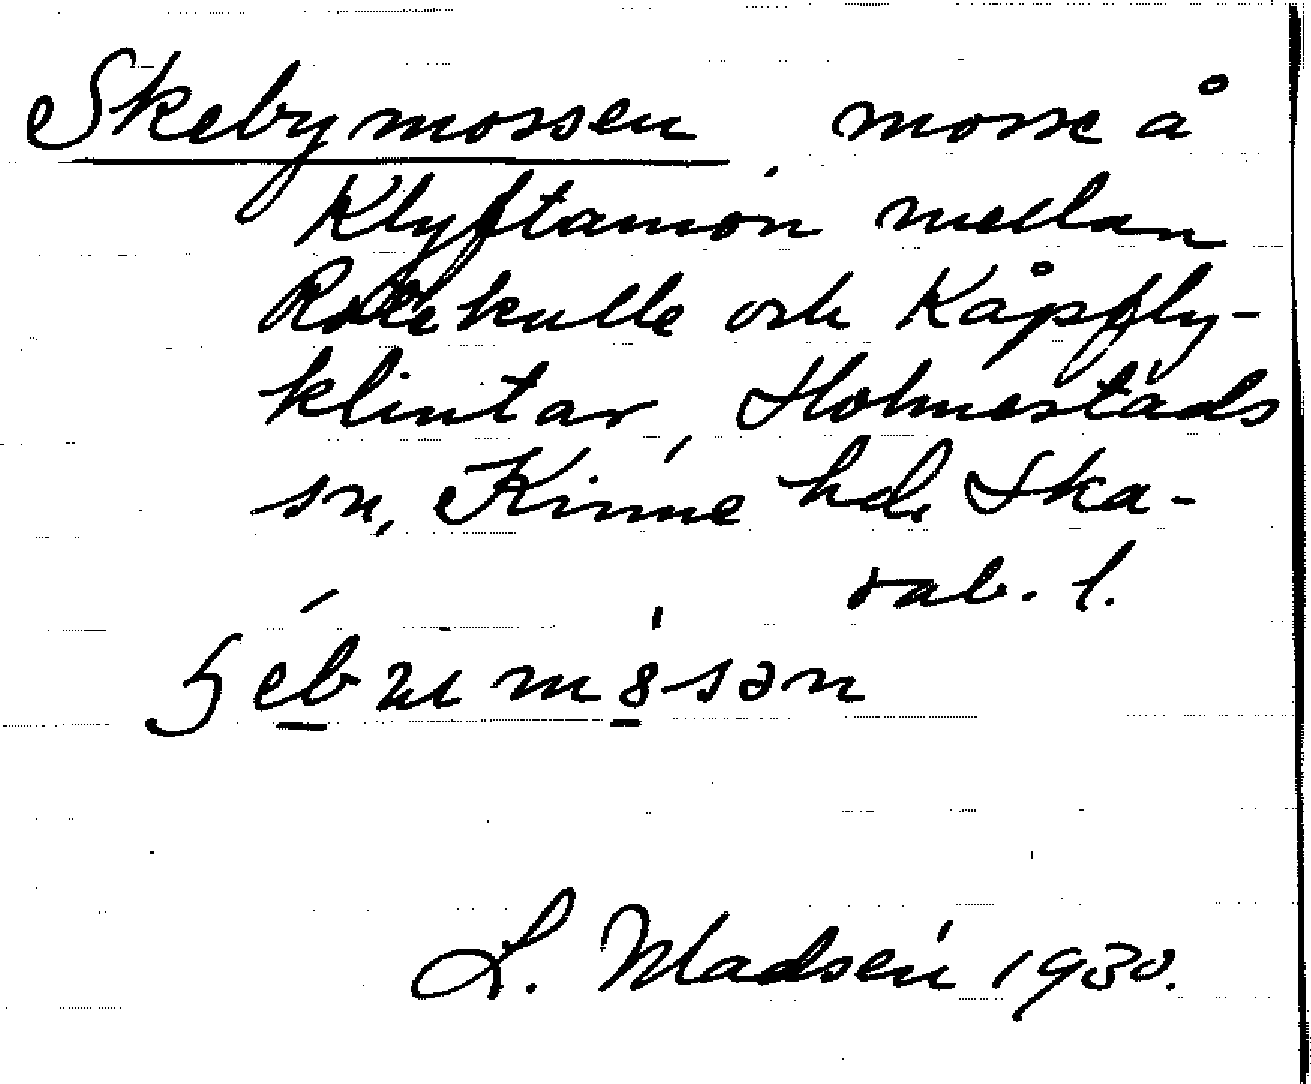 Skebymossen, mosse å
Klyftamon mellan
kulle och Kåpfly-
klintar, Holmestads
sn, Kinne hd, Ska-
rab. l.
L. Madsén 1930.